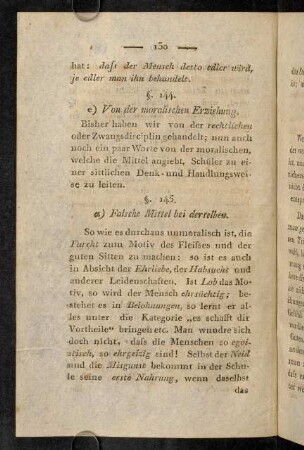 — 130 —
hat: daſs der Menſch deſto edler wird,
je edler man ihn behandelt.
§. 144.
e) Von der moraliſchen Erziehung.
Bisher haben wir von der rechtlichen
oder Zwangsdisciplin gehandelt; nun auch
noch ein paar Worte von der moraliſchen,
welche die Mittel angiebt, Schüler zu ei-
ner ſittlichen Denk- und Handlungswei-
ſe zu leiten.
§. 145.
α) Falſche Mittel bei derſelben.
So wie es durchaus unmoraliſch iſt, die
Furcht zum Motiv des Fleiſses und der
guten Sitten zu machen: ſo iſt es auch
in Abſicht des Ehrliebe, der Habſucht und
anderer Leidenſchaften. Iſt Lob das Mo-
tiv, ſo wird der Menſch ehrſüchtig; be-
ſteher es in Belohnungen, ſo lernt er al-
les unter die Kategorie „es ſchafft dir
Vortheile“ bringen etc. Man wundre ſich
doch nicht, daſs die Menſchen ſo egoi-
ſtiſch, ſo ehrgeizig ſind! Selbſt der Neid
und die Misgunſt bekommt in der Schu-
le ſeine erſte Nahrung, wenn daſelbſt
das